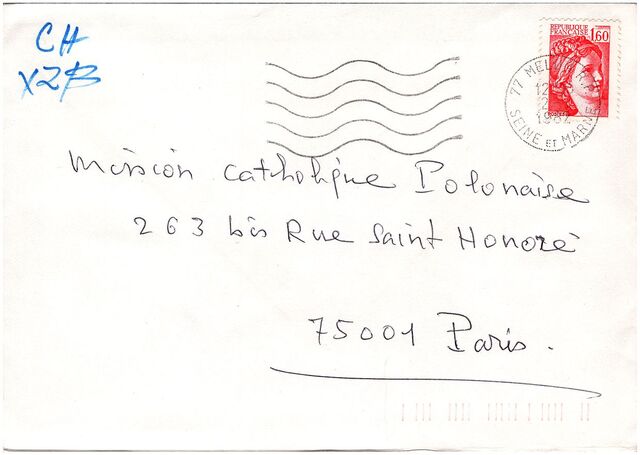 CH
XZB
REPUBLIQUE
FRANÇAISE
1,60
77 MELUN R.P.
12
2
1982
SEINE ET MARNE
Mission Catholique Polonaise
263 bis Rue Saint Honoré
75001 Paris.